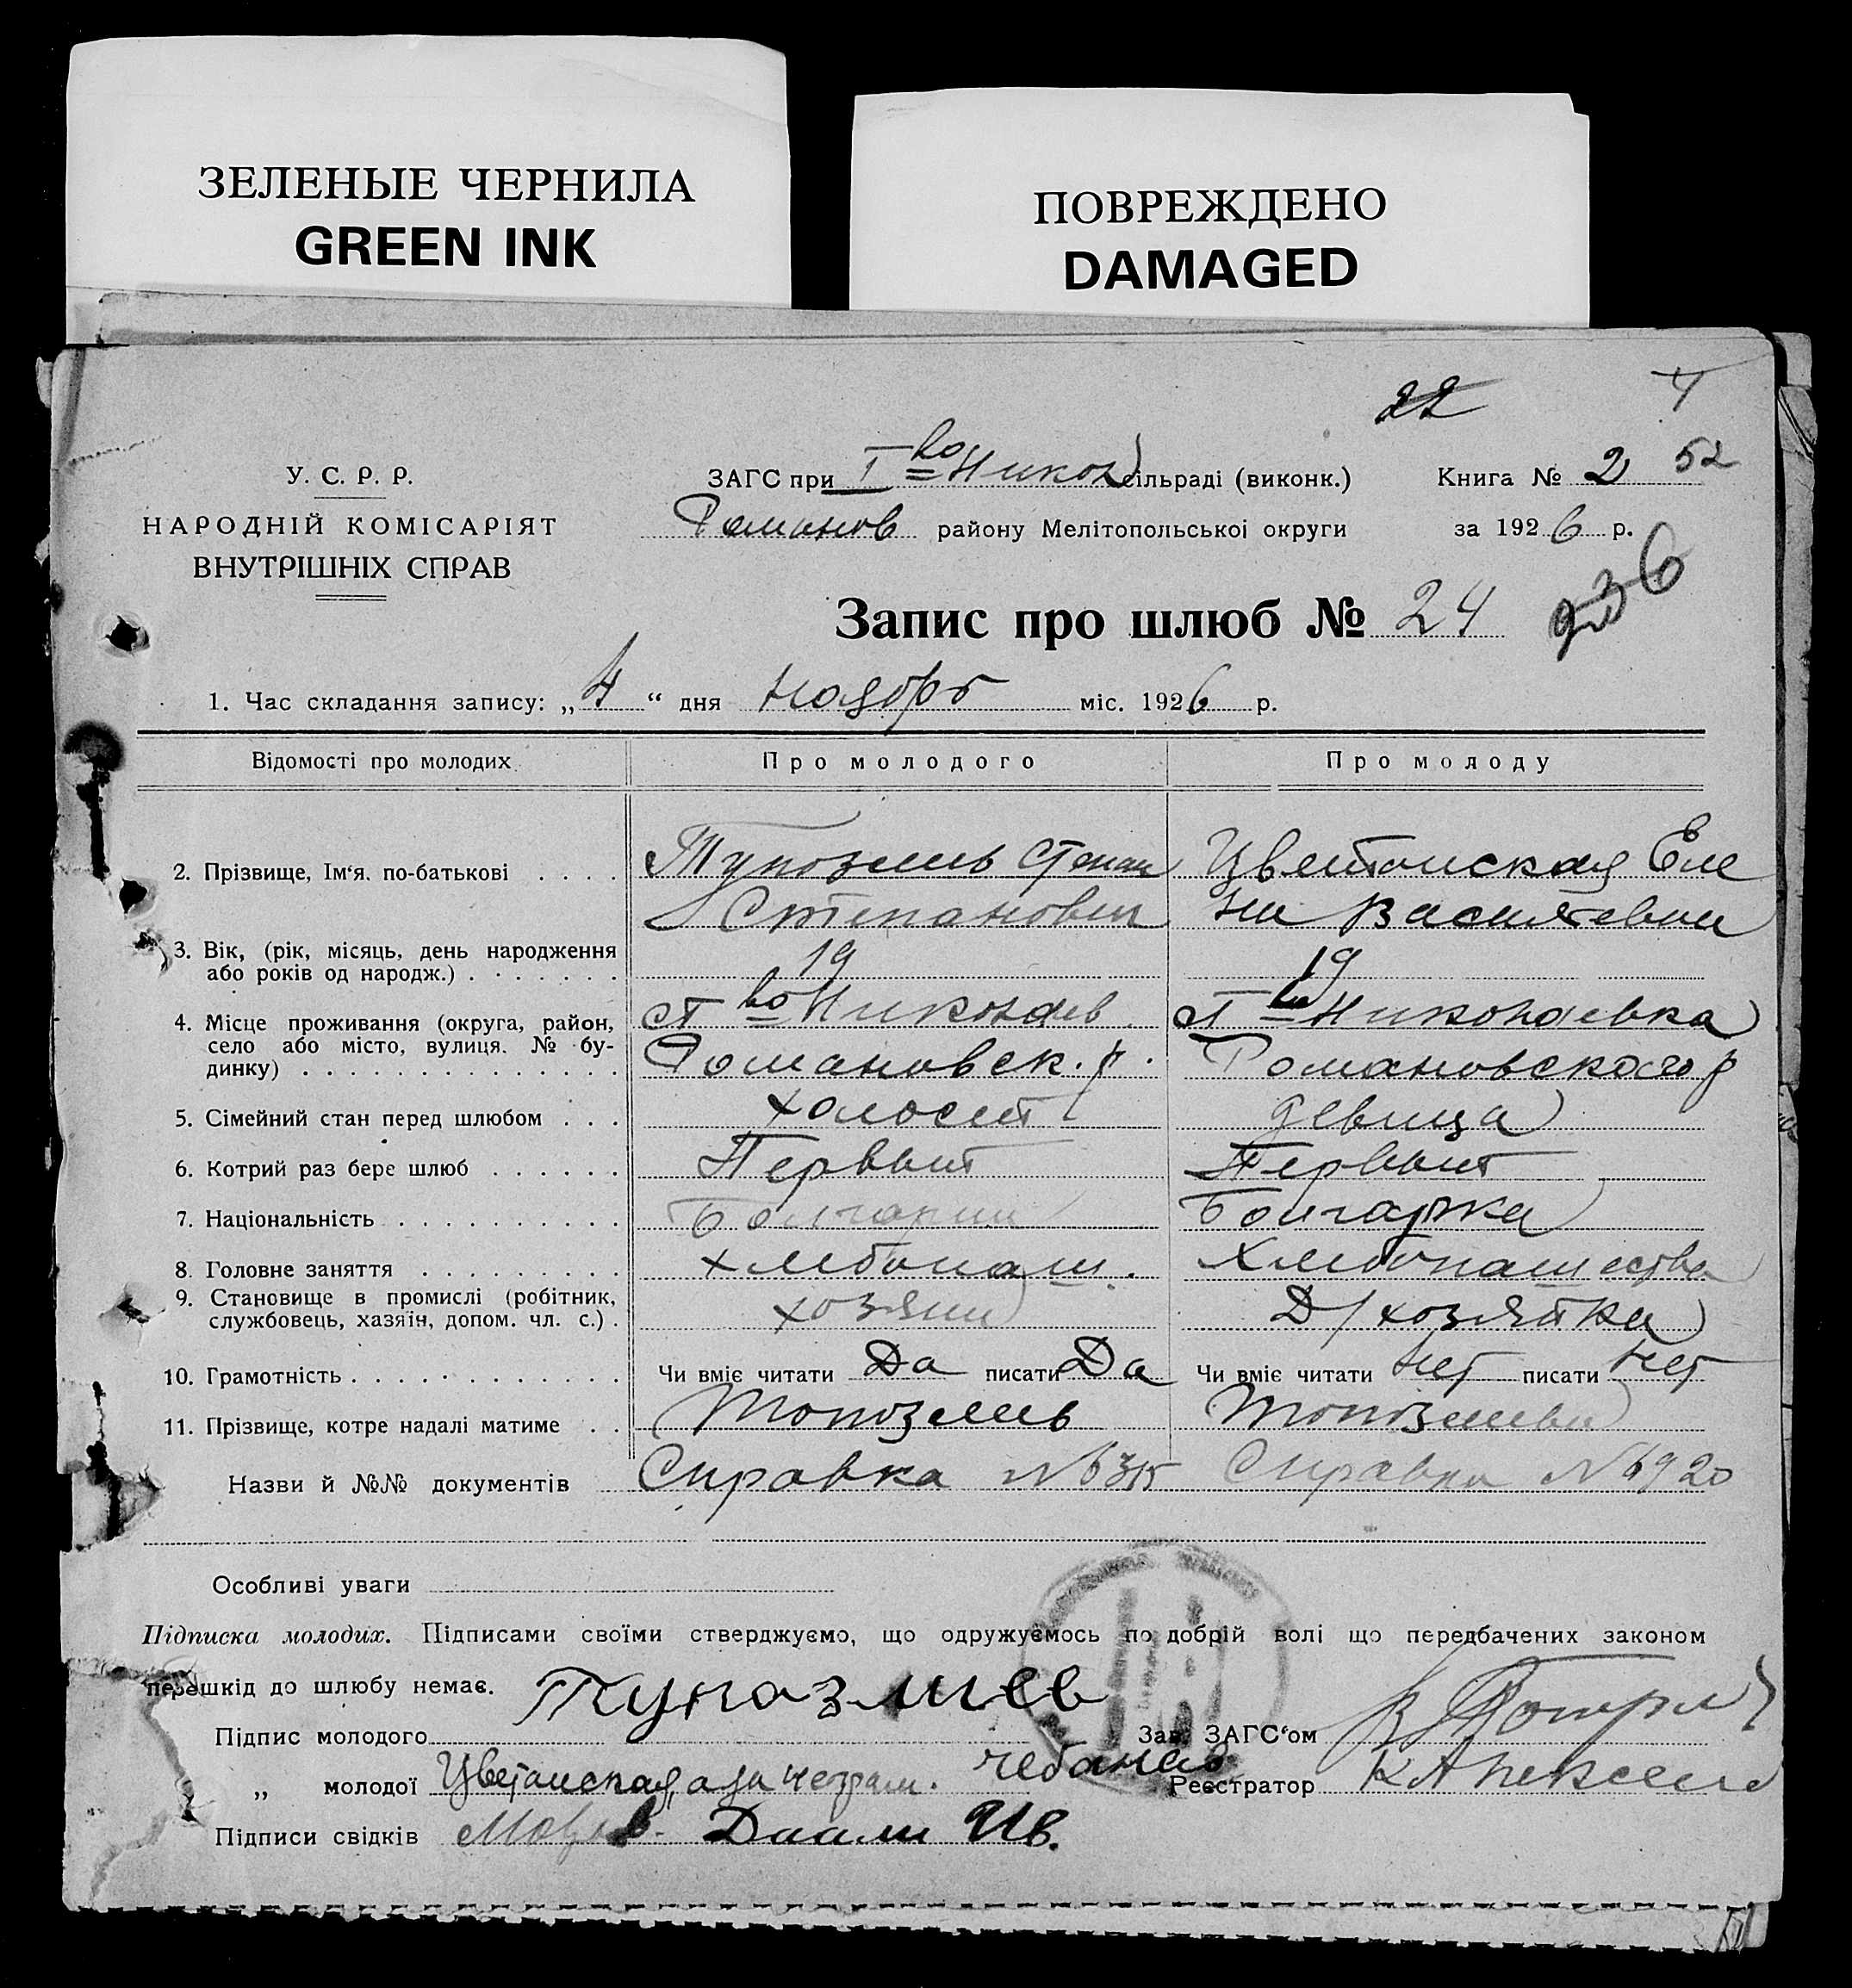 ЗЕЛЕНЫЕ ЧЕРНИЛА
GREEN INK
ПОВРЕЖДЕНО
DAMAGED
22
52
У. С. Р. Р.
НАРОДНІЙ КОМІСАРІЯТ
ВНУТРІШНІХ СПРАВ
ЗАГС при І во Никол сільраді (виконк.)
Романов району Мелітопольської округи
Книга № 2
за 1926 р.
Запис про шлюб № 24
236
1. Час складання запису: „4“ дня Ноября міс. 1926 р.
Відомості про молодих
Про молодого
Про молоду
2. Прізвище, Ім'я. по-батькові . . . . Тупозлиев Степан Цветанская Еле
Степанович на Василевна
3. Вік, (рік, місяць, день народження
або років од народж.) . . . . . . 19 19
4. Місце проживання (округа, район, ст во Николаев. ст во Николаевка
село або місто, вулиця. № бу- Романовск. р. Романовского р
динку) . . . . . . . . . . . . . .
5. Сімейний стан перед шлюбом . . . холост девица
6. Котрий раз бере шлюб . . . . . . Первый Первый
7. Національність . . . . . . . . . . Болгарин Болгарка
8. Головне заняття . . . . . . . . . хлебопаш. Хлебопашество
9. Становище в промислі (робітник,
службовець, хазяїн, допом. чл. с.) . хозяин Д/хозяйка
10. Грамотність . . . . . . . . . . . . Чи вміє читати Да писати Да Чи вміє читати нет писати нет
11. Прізвище, котре надалі матиме . . Топозлиев Топозлиева
Назви й №№ документів Справка № 6315 Справка № 6920
Особливі уваги
Підписка молодих. Підписами своїми стверджуємо, що одружуємось по добрій волі що передбачених законом
перешкід до шлюбу немає.
Підпис молодого Тупазлиев Зав. ЗАГС'ом
„ молодої Цветанская, а за неграм. Чебанов Реєстратор К Алексеев
Підписи свідків Даали Ив.